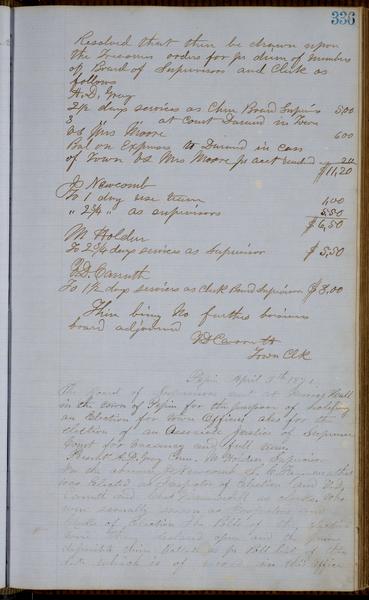 336
Resolved that there be drawn upon
the Treasurer orders for per diem of members
of Board of Supervisors and Clerk as
follows
A.D. Gray
2½ days services as Chm Board Supervisors 5,00
3 " " at Court Durand in Town
vs Mrs Moore 6,00
Bal on Expenses to Durand in case
of Town vs Mrs Moore pr acct 20
$11,20
J Newcomb
To 1 day 1,00
" 2¾ " as supervisors 5,50
$6,50
M Holden
To 2¾ days services as Supervisor $5,50
To 1½ days services as Clerk Board Supervisors $3,00
There being No further business
board adjourned
Town Clk
Pepin April 4th 187
The Board of Supervisors met at Hall
in the town of Pepin for the purpose of holding
an Election for Town Officers also for the
election of an Associate Justice of Supreme
Court for vacancy and full term
Present A.D. Gray Chm. M Holden Supervisor
In the absence of Newcomb S. C.
was Elected as Inspector of Election and
Carruth and as Clerks who
were severally sworn as Inspectors and
Clerks of Election the Polls of the election
were then declared open and the
deposited their Ballots as pr Poll list of this
date which is of record in this office